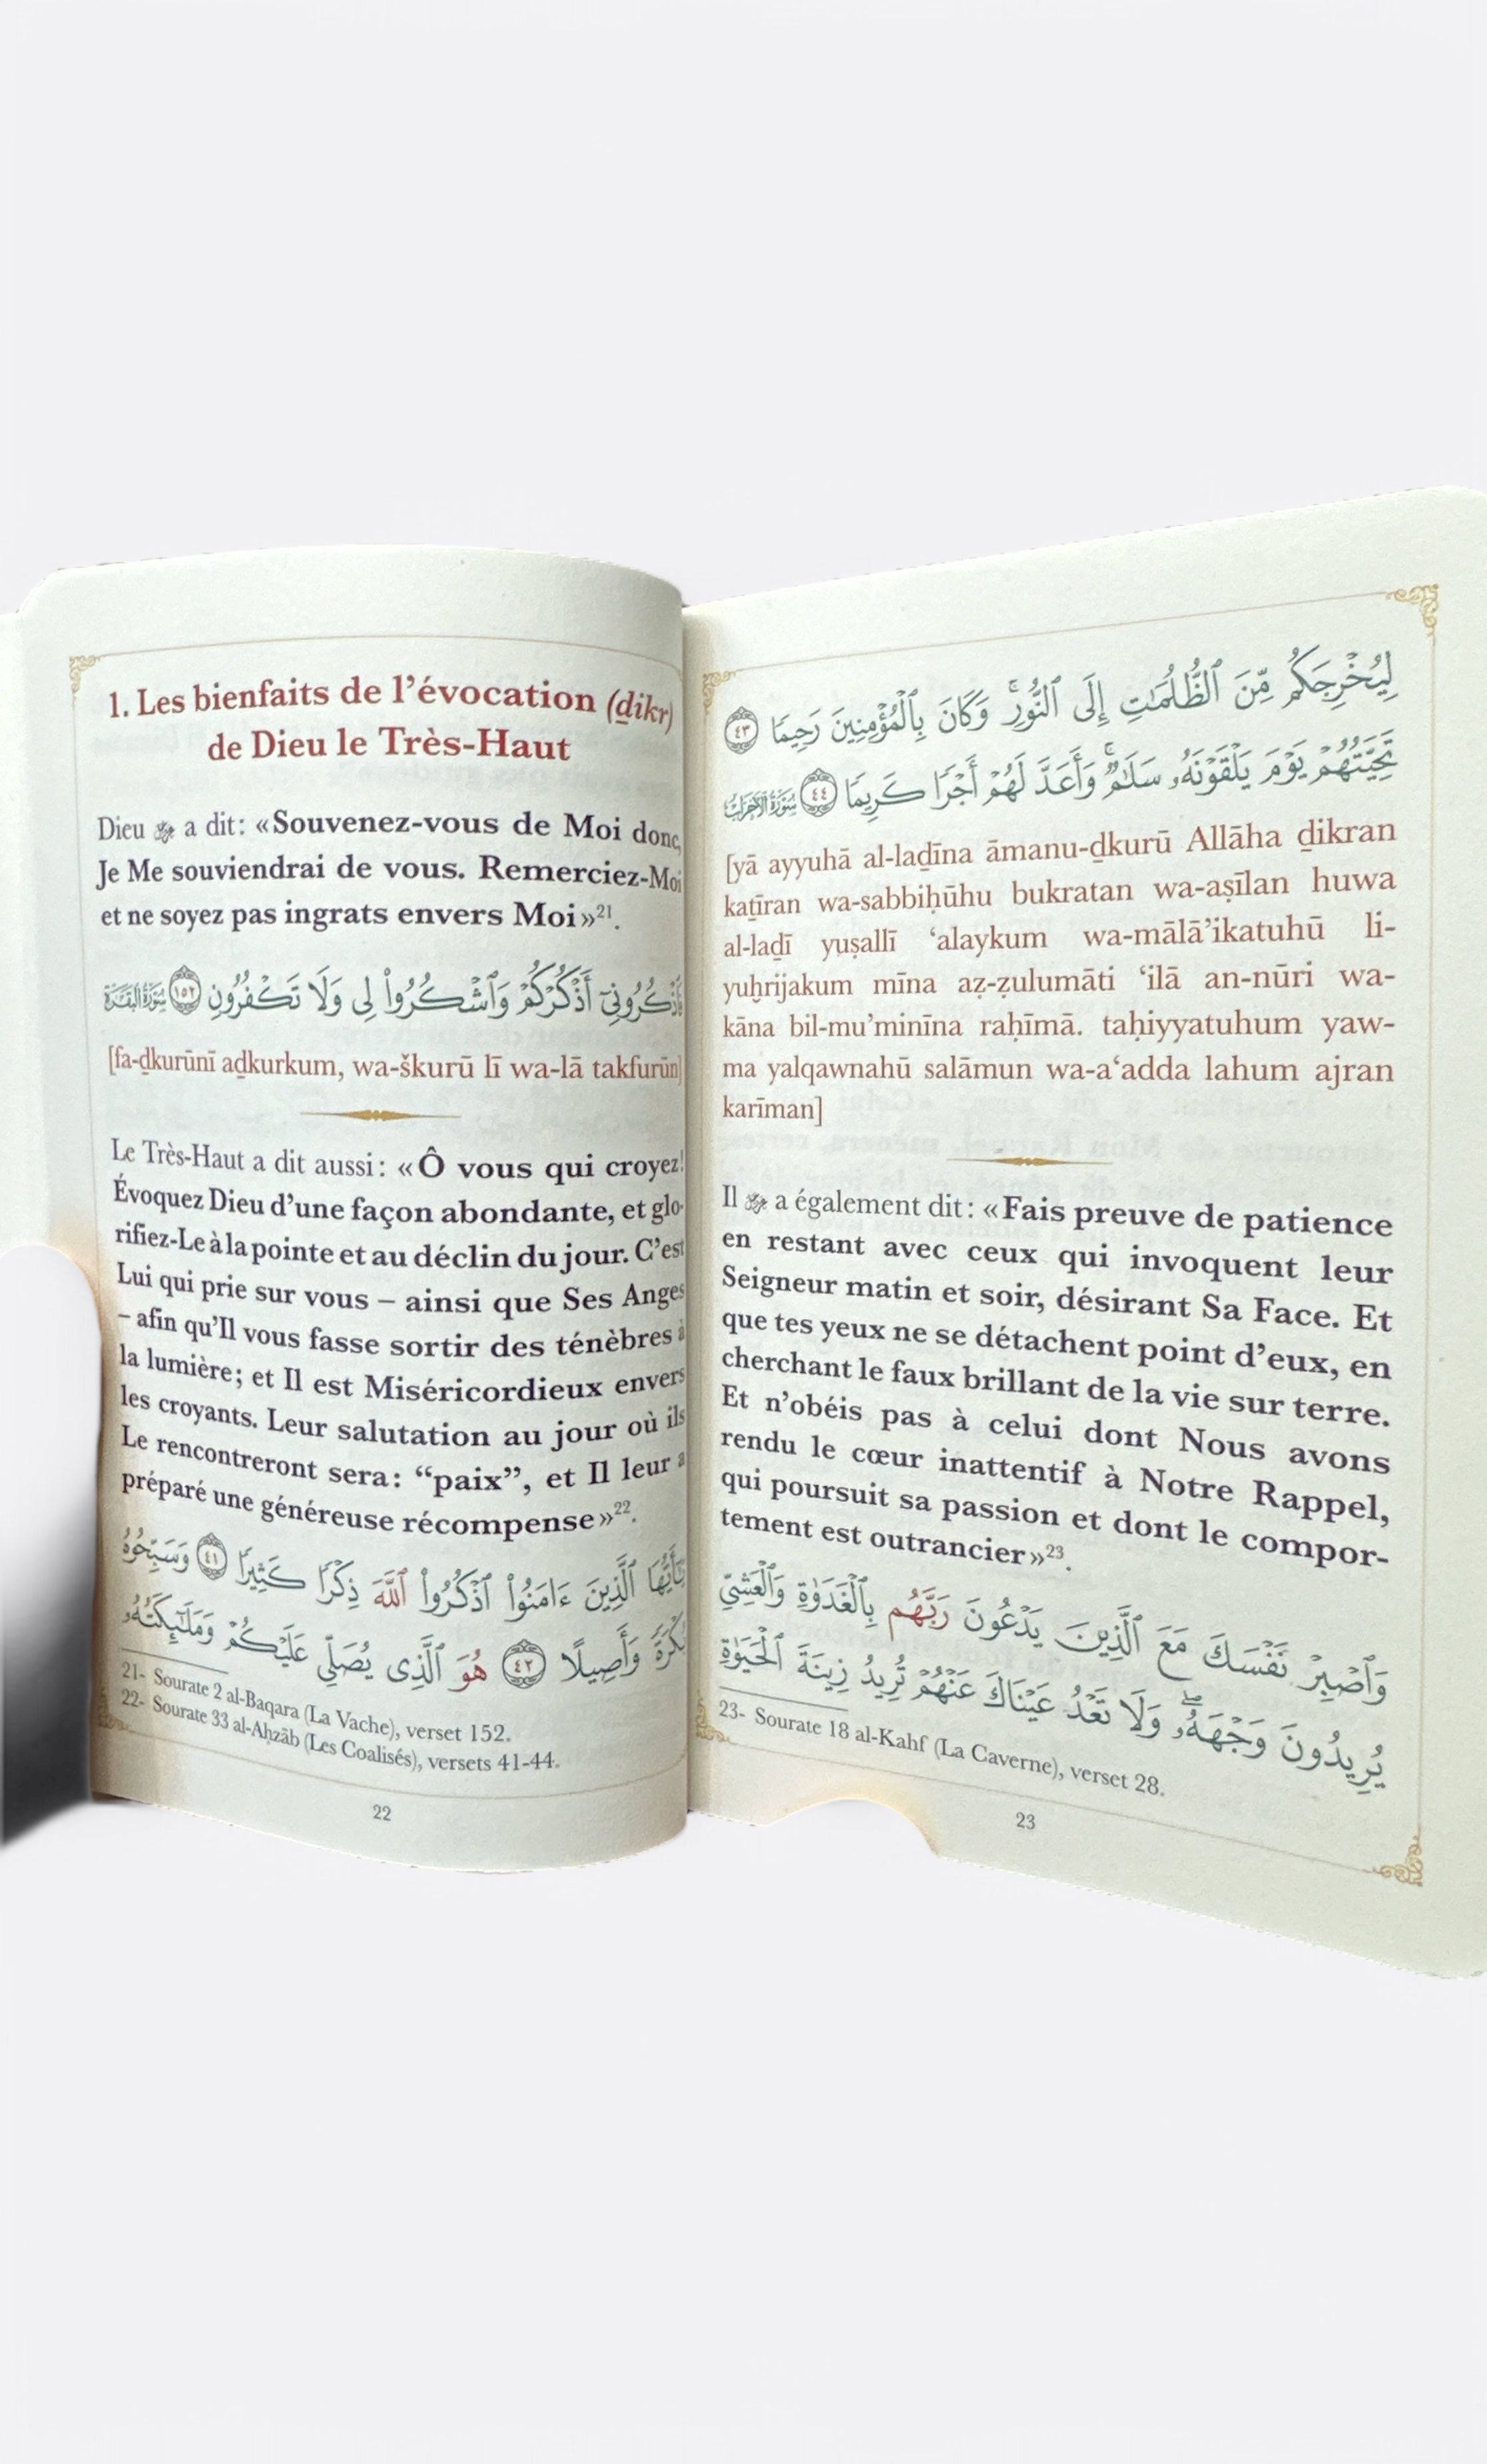 1. Les bienfaits de l’évocation (ḏikr)
de Dieu le Très-Haut
Dieu ﷻ a dit : «Souvenez-vous de Moi donc,
Je Me souviendrai de vous. Remerciez-Moi
et ne soyez pas ingrats envers Moi»²¹.
أَذْكُرْكُمْ وَٱشْكُرُوا۟ لِى وَلَا تَكْفُرُونِ ١٥٢ سُورَةُ البَقَرَةِ
[fa-ḏkurūnī aḏkurkum, wa-škurū lī wa-lā takfurūn]
Le Très-Haut a dit aussi : «Ô vous qui croyez!
Évoquez Dieu d’une façon abondante, et glo-
rifiez-Le à la pointe et au déclin du jour. C’est
Lui qui prie sur vous – ainsi que Ses Anges
– afin qu’Il vous fasse sortir des ténèbres à
la lumière; et Il est Miséricordieux envers
les croyants. Leur salutation au jour où ils
Le rencontreront sera: “paix”, et Il leur a
préparé une généreuse récompense»²².
ٱلَّذِينَ ءَامَنُوا۟ ٱذْكُرُوا۟ ٱللَّهَ ذِكْرًا كَثِيرًا ٤١ وَسَبِّحُوهُ
وَأَصِيلًا ٤٢ هُوَ ٱلَّذِى يُصَلِّى عَلَيْكُمْ وَمَلَٰٓئِكَتُهُۥ
21- Sourate 2 al-Baqara (La Vache), verset 152.
22- Sourate 33 al-Aḥzāb (Les Coalisés), versets 41-44.
22
لِيُخْرِجَكُم مِّنَ ٱلظُّلُمَٰتِ إِلَى ٱلنُّورِ ۚ وَكَانَ بِٱلْمُؤْمِنِينَ رَحِيمًا ٤٣
تَحِيَّتُهُمْ يَوْمَ يَلْقَوْنَهُۥ سَلَٰمٌ ۚ وَأَعَدَّ لَهُمْ أَجْرًا كَرِيمًا ٤٤ سُورَةُ الأَحْزَابِ
[yā ayyuhā al-laḏīna āmanu-ḏkurū Allāha ḏikran
kaṯīran wa-sabbiḥūhu bukratan wa-aṣīlan huwa
al-laḏī yuṣallī ‘alaykum wa-mālā’ikatuhū li-
yuḫrijakum mīna aẓ-ẓulumāti ‘ilā an-nūri wa-
kāna bil-mu’minīna raḥīmā. taḥiyyatuhum yaw-
ma yalqawnahū salāmun wa-a‘adda lahum ajran
karīman]
Il ﷻ a également dit : «Fais preuve de patience
en restant avec ceux qui invoquent leur
Seigneur matin et soir, désirant Sa Face. Et
que tes yeux ne se détachent point d’eux, en
cherchant le faux brillant de la vie sur terre.
Et n’obéis pas à celui dont Nous avons
rendu le cœur inattentif à Notre Rappel,
qui poursuit sa passion et dont le compor-
tement est outrancier»²³.
وَٱصْبِرْ نَفْسَكَ مَعَ ٱلَّذِينَ يَدْعُونَ رَبَّهُم بِٱلْغَدَوٰةِ وَٱلْعَشِىِّ
يُرِيدُونَ وَجْهَهُۥ ۖ وَلَا تَعْدُ عَيْنَاكَ عَنْهُمْ تُرِيدُ زِينَةَ ٱلْحَيَوٰةِ
23- Sourate 18 al-Kahf (La Caverne), verset 28.
23